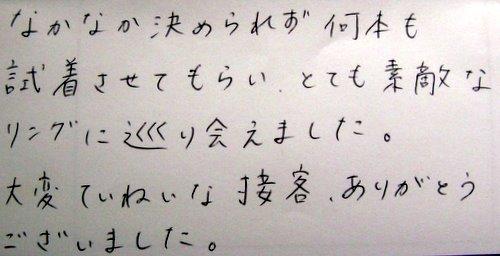 なかなか決められず何本も
試着させてもらい、とても素敵な
リングに巡り会えました。
大変ていねいな接客、ありがとう
ございました。